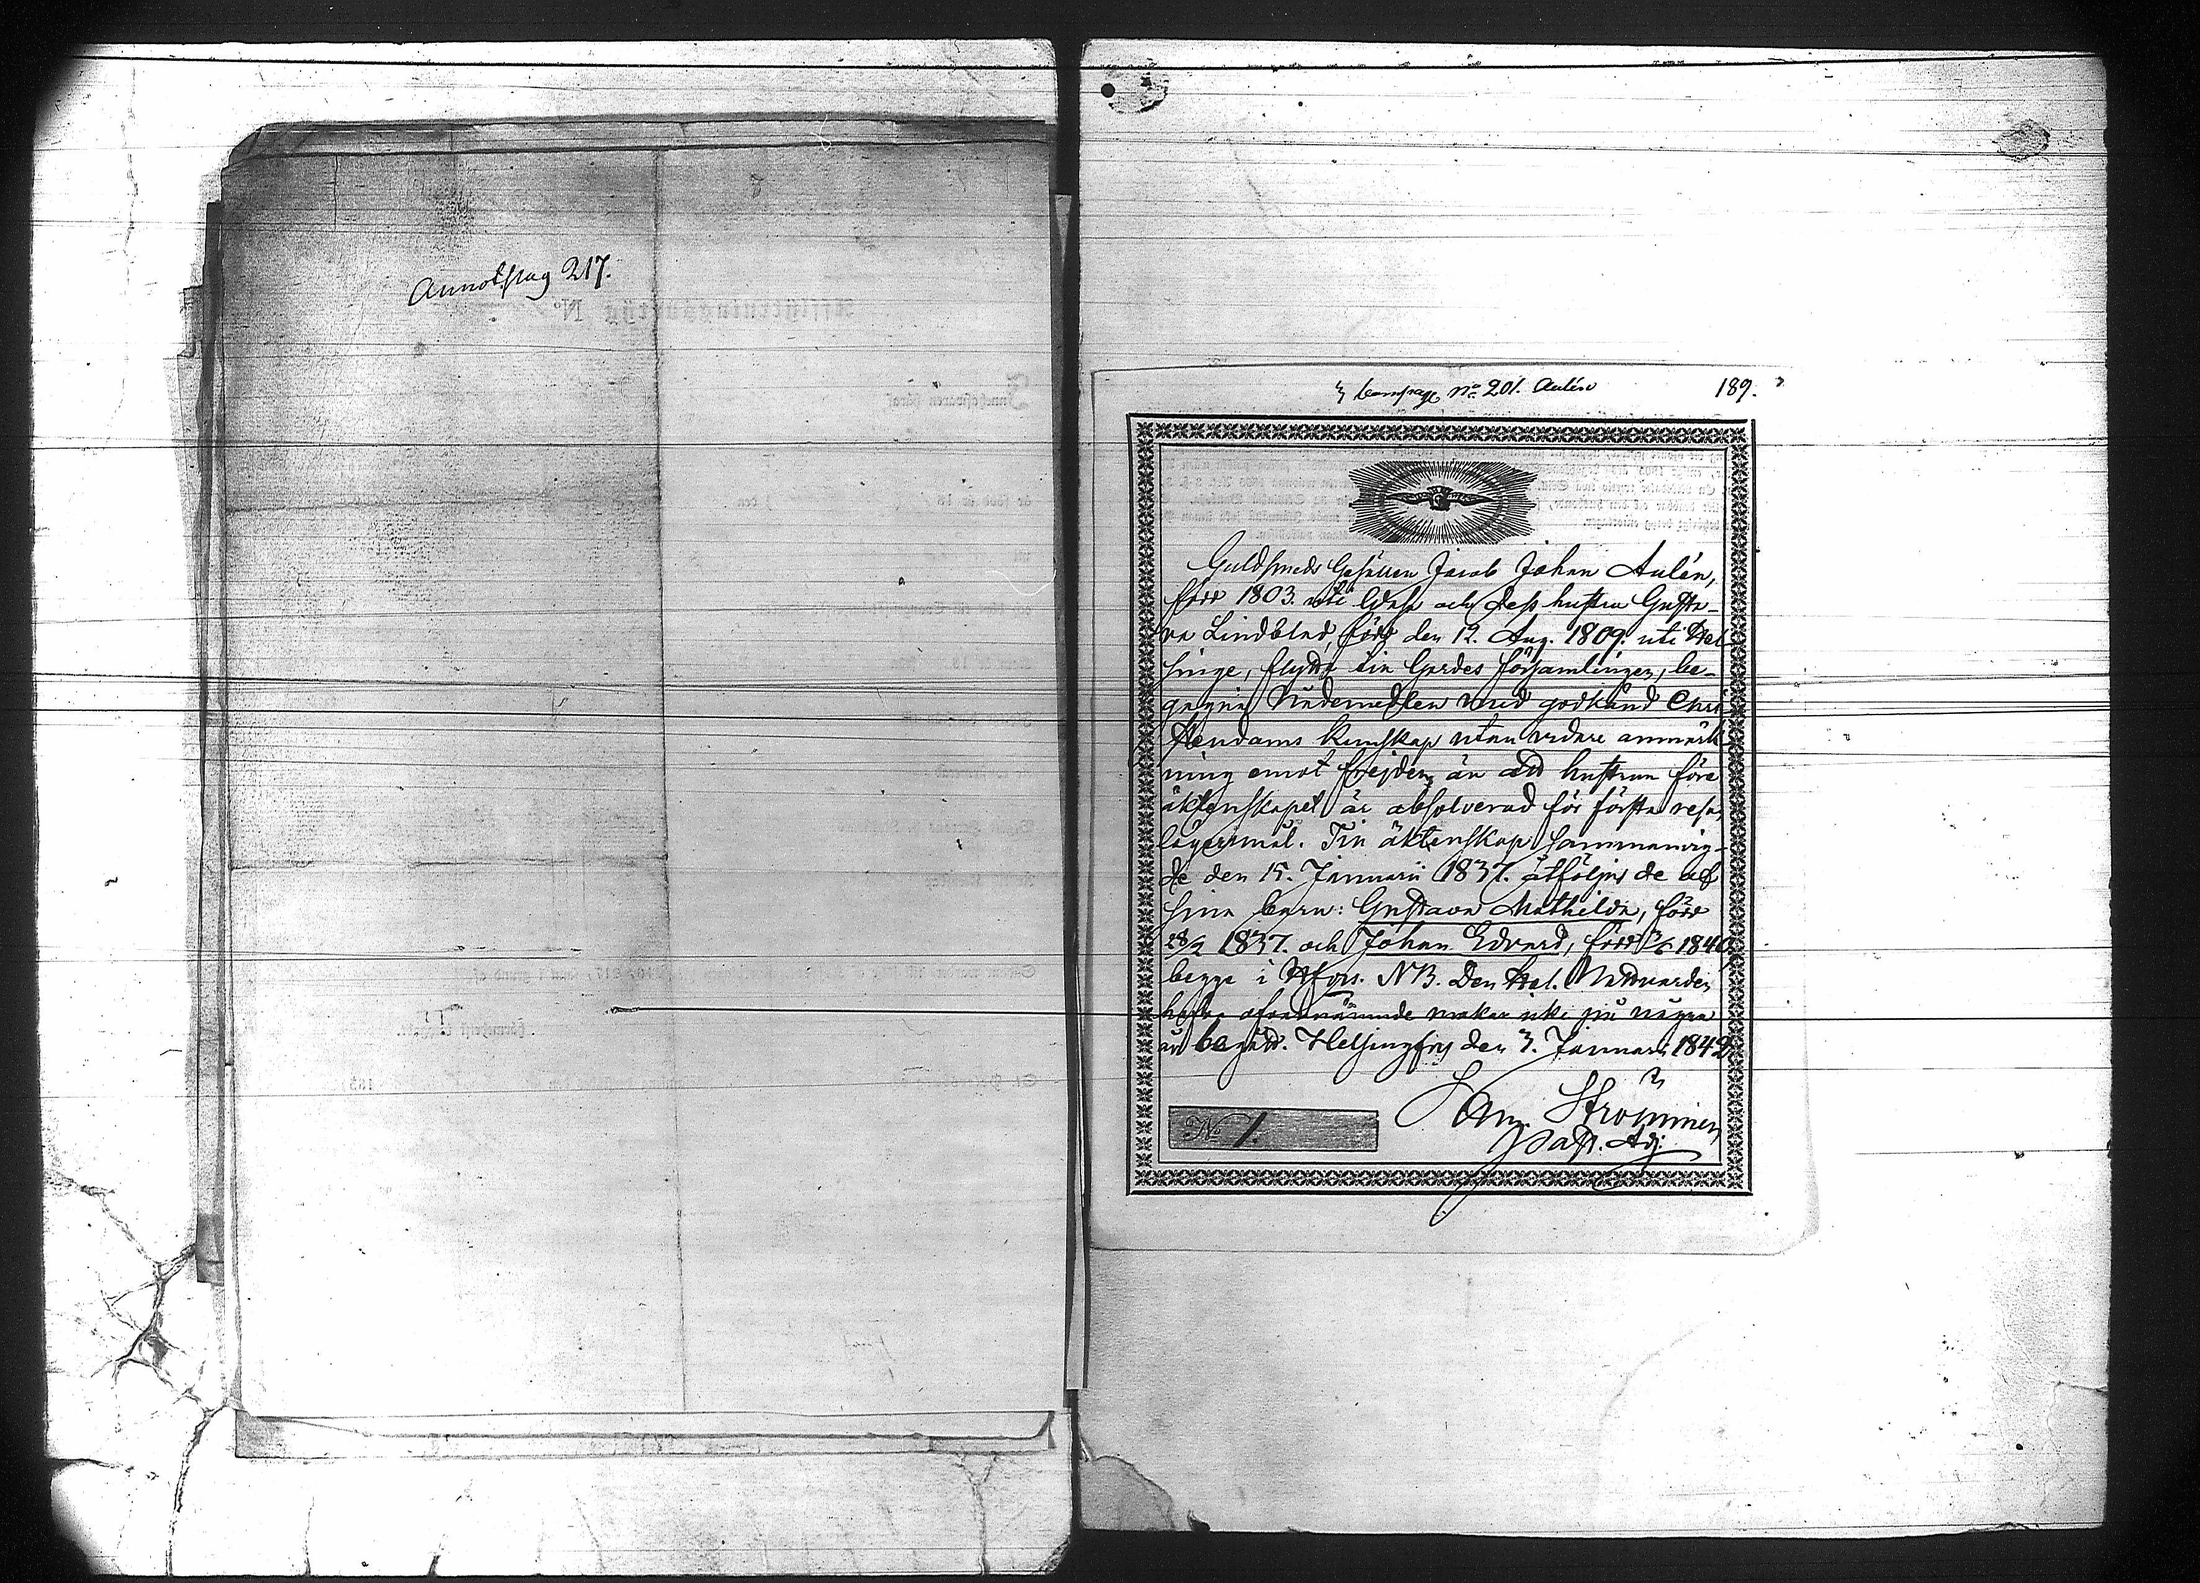 Annot. pag 217.
Compage No 201. Aulén
189.
Guldsmeds Gesällen Jacob Johan Aulén,
född 1803. uti och dess hustru Gusta-
va Lindblad, född den 12. Aug. 1809. uti Hel
singe, flytta till Gerdes församlingen, be-
gagna Nådemedlen med godkänd Chri
stendoms kunskap utan vidare anmärk
ning emot frejden, än att hustrun före
äktenskapet är absolverad för första resa
lägersmål. Till äktenskap sammanvig-
de den 15. Januarii 1837. åtföljas de af
sina barn: Gustava Mathilda, född
28/2 1837. och Johan Edvard, född 1840,
begge i Hfors. NB. Den Hel. Nattvarden
hafva ofvannämnde makar icke på några
år begått. Helsingfors den 3. Januari 1842
Sam. Strömmer
Past. Adj.
No 1.